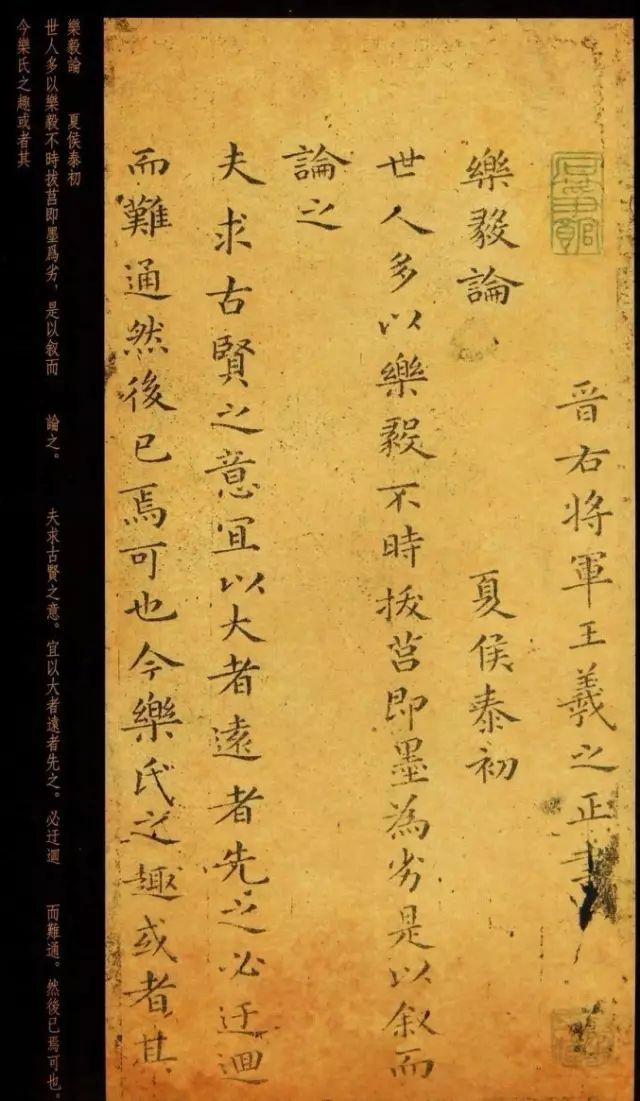 晋右将軍王羲之正書
樂毅論 夏侯泰初
世人多以樂毅不時拔莒即墨為劣是以叙而
論之
夫求古賢之意宜以大者遠者先之必迂迴
而難通然後已焉可也今樂氏之趣或者其
樂毅論 夏侯泰初
世人多以樂毅不時拔莒即墨爲劣，是以叙而 論之。 夫求古賢之意。宜以大者遠者先之。必迂迴 而難通。然後已焉可也。
今樂氏之趣或者其